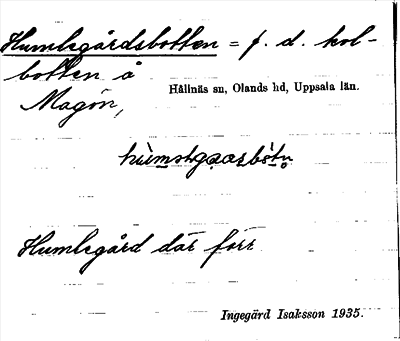 Humlegårdsbotten = f. d. kol-
botten å
Magön, Hållnäs sn, Olands hd, Uppsala län.
Humlegård där förr
Ingegärd Isaksson 1935.